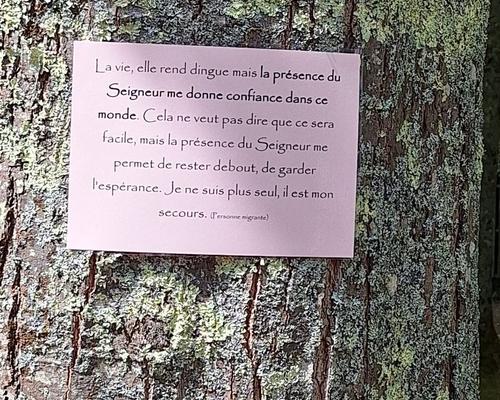 La vie, elle rend dingue mais la présence du
Seigneur me donne confiance dans ce
monde. Cela ne veut pas dire que ce sera
facile, mais la présence du Seigneur me
permet de rester debout, de garder
l'espérance. Je ne suis plus seul, il est mon
secours. (Personne migrante)